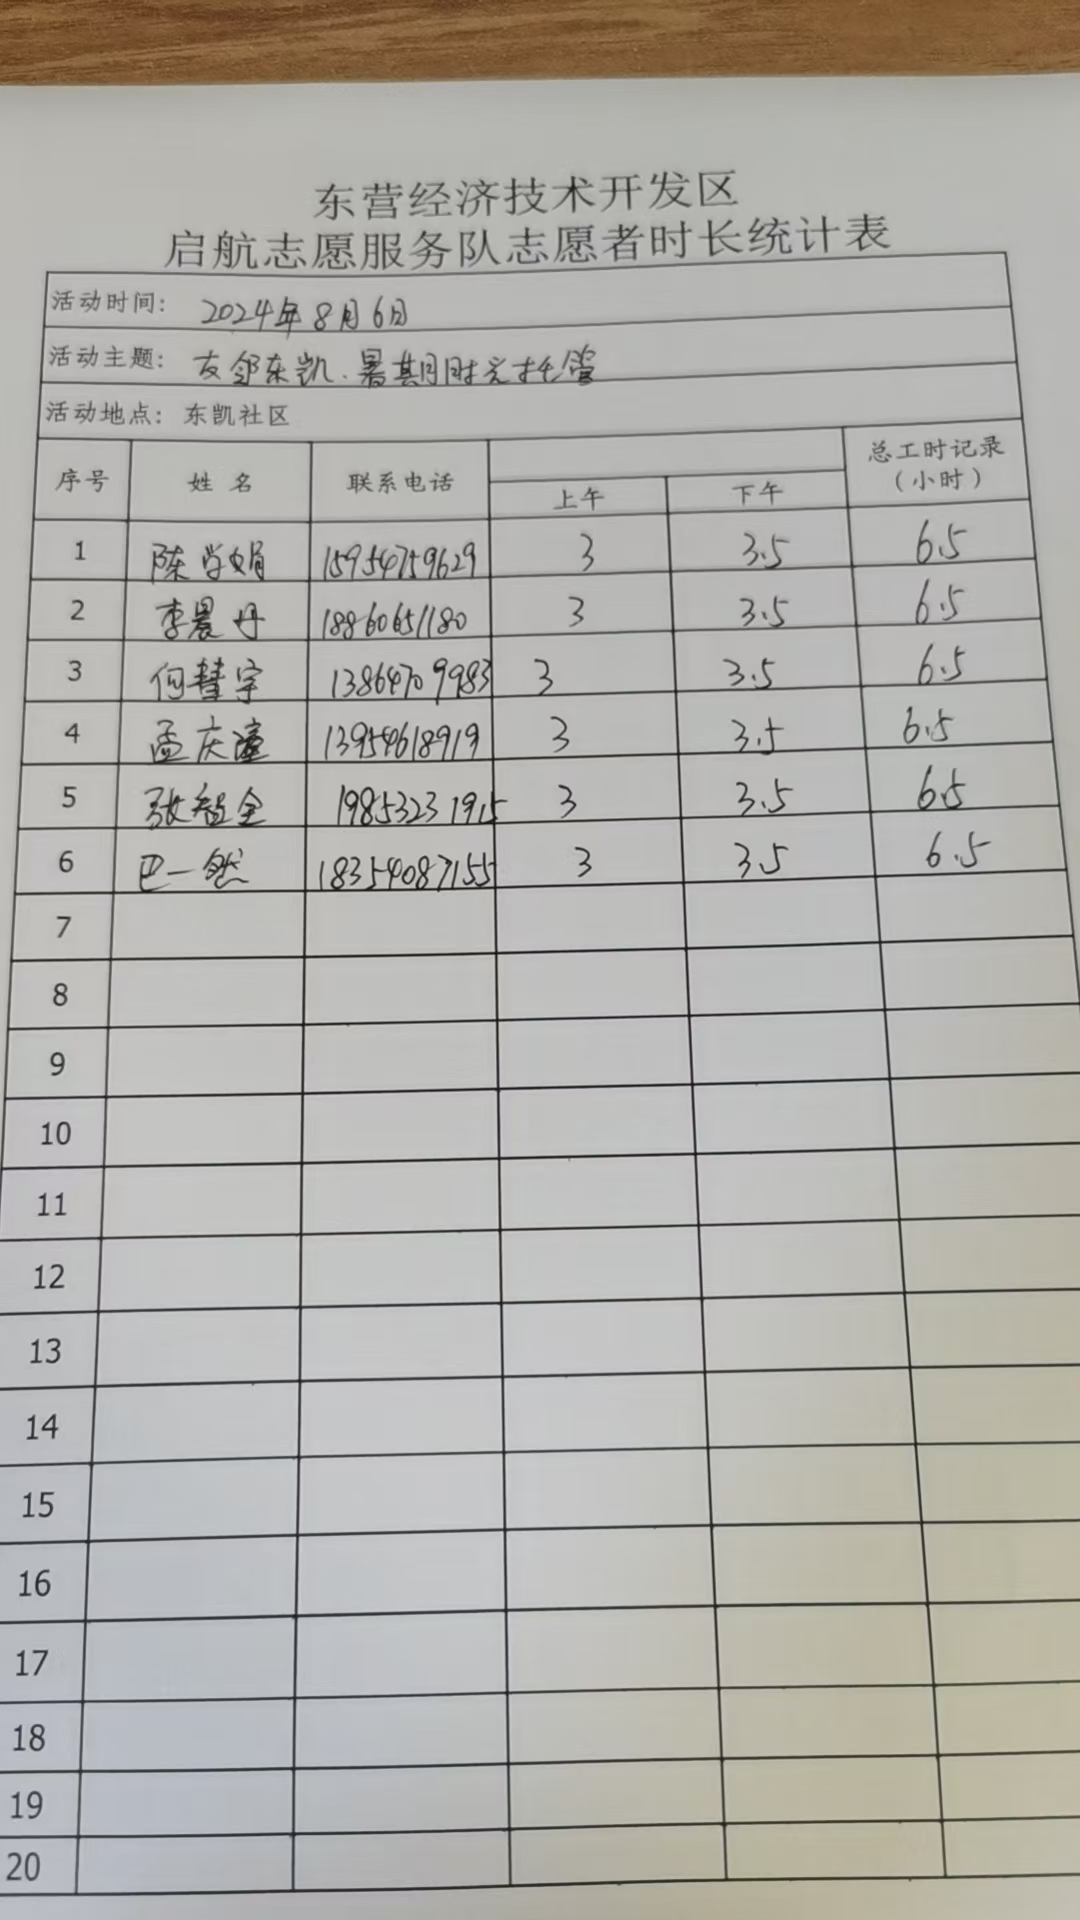 东营经济技术开发区
启航志愿服务队志愿者时长统计表
活动时间: 2024年8月6日
活动主题: 友邻东凯.暑期时光托管
活动地点: 东凯社区
序号 姓名 联系电话 上午 下午 总工时记录(小时)
1 陈学娟 15954759629 3 3.5 6.5
2 李晨丹 18860651180 3 3.5 6.5
3 何慧宇 13864709983 3 3.5 6.5
4 孟庆 13954618919 3 3.5 6.5
5 张智全 3 3.5 6.5
6 巴一然 18354087155 3 3.5 6.5
7
8
9
10
11
12
13
14
15
16
17
18
19
20